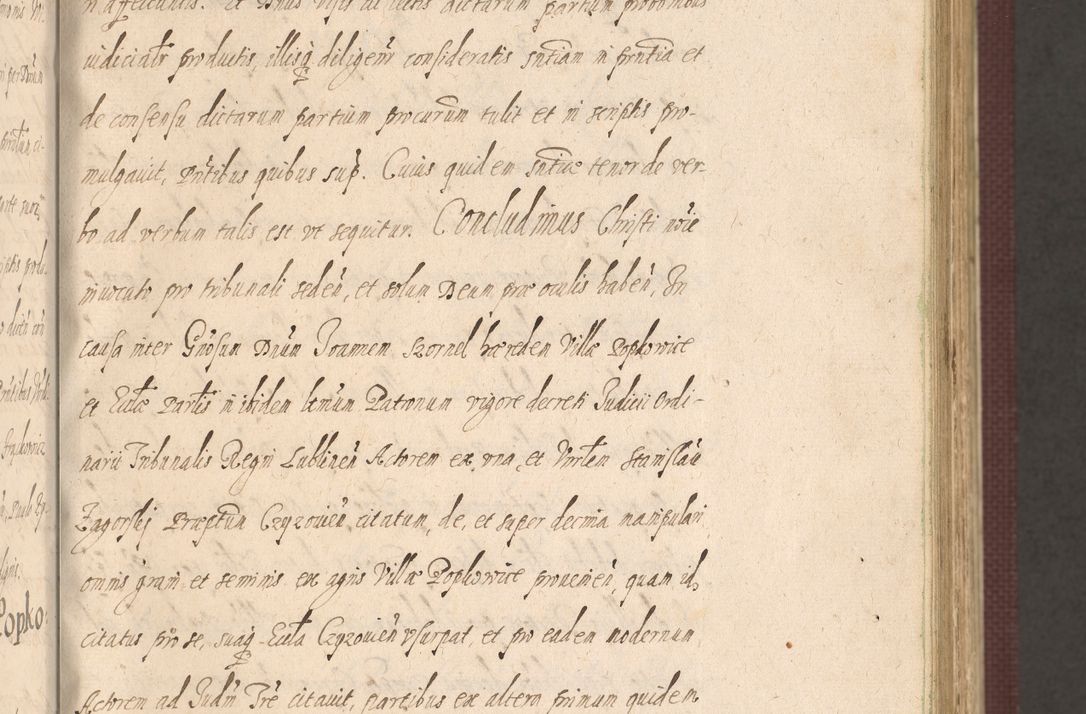 n affectantis. Et Dnus visis
iudicialr productis, illisq diligenr consideratis sntiam in prntia et
de consensu dictarum partium procurum tulit et in scriptis pro-
mulgauit, Prntibus quibus sup. Cuius quidem sntiae tenor de ver-
bo ad verbum talis est vt sequitur. Concludimus Christi noie
inuocato pro tribunali seden, et solum Deum prae oculis haben, In
causa inter Gnosum Dnum Joannem Szornel haeredem Villae Popkowice
et Eccla Parlis in ibidem ltmum Patronum vigore decreti Judicii Ordi-
narii Tribunalis Regni Lublinen Actorem ex vna, et Vnrlem Stanislau
Zagorskj Praeptum Czyzouien, citatum, de, et super decima manipulari
omnis grani et seminis ex agris Villae Popkowice prouenien, quam ids
citatus pro se, suaq Eccla Czyzouien vsurpat, et pro eadem modernum
Actorem ad Judm Tre citauit, partibus ex altera primum quidem
Popko: